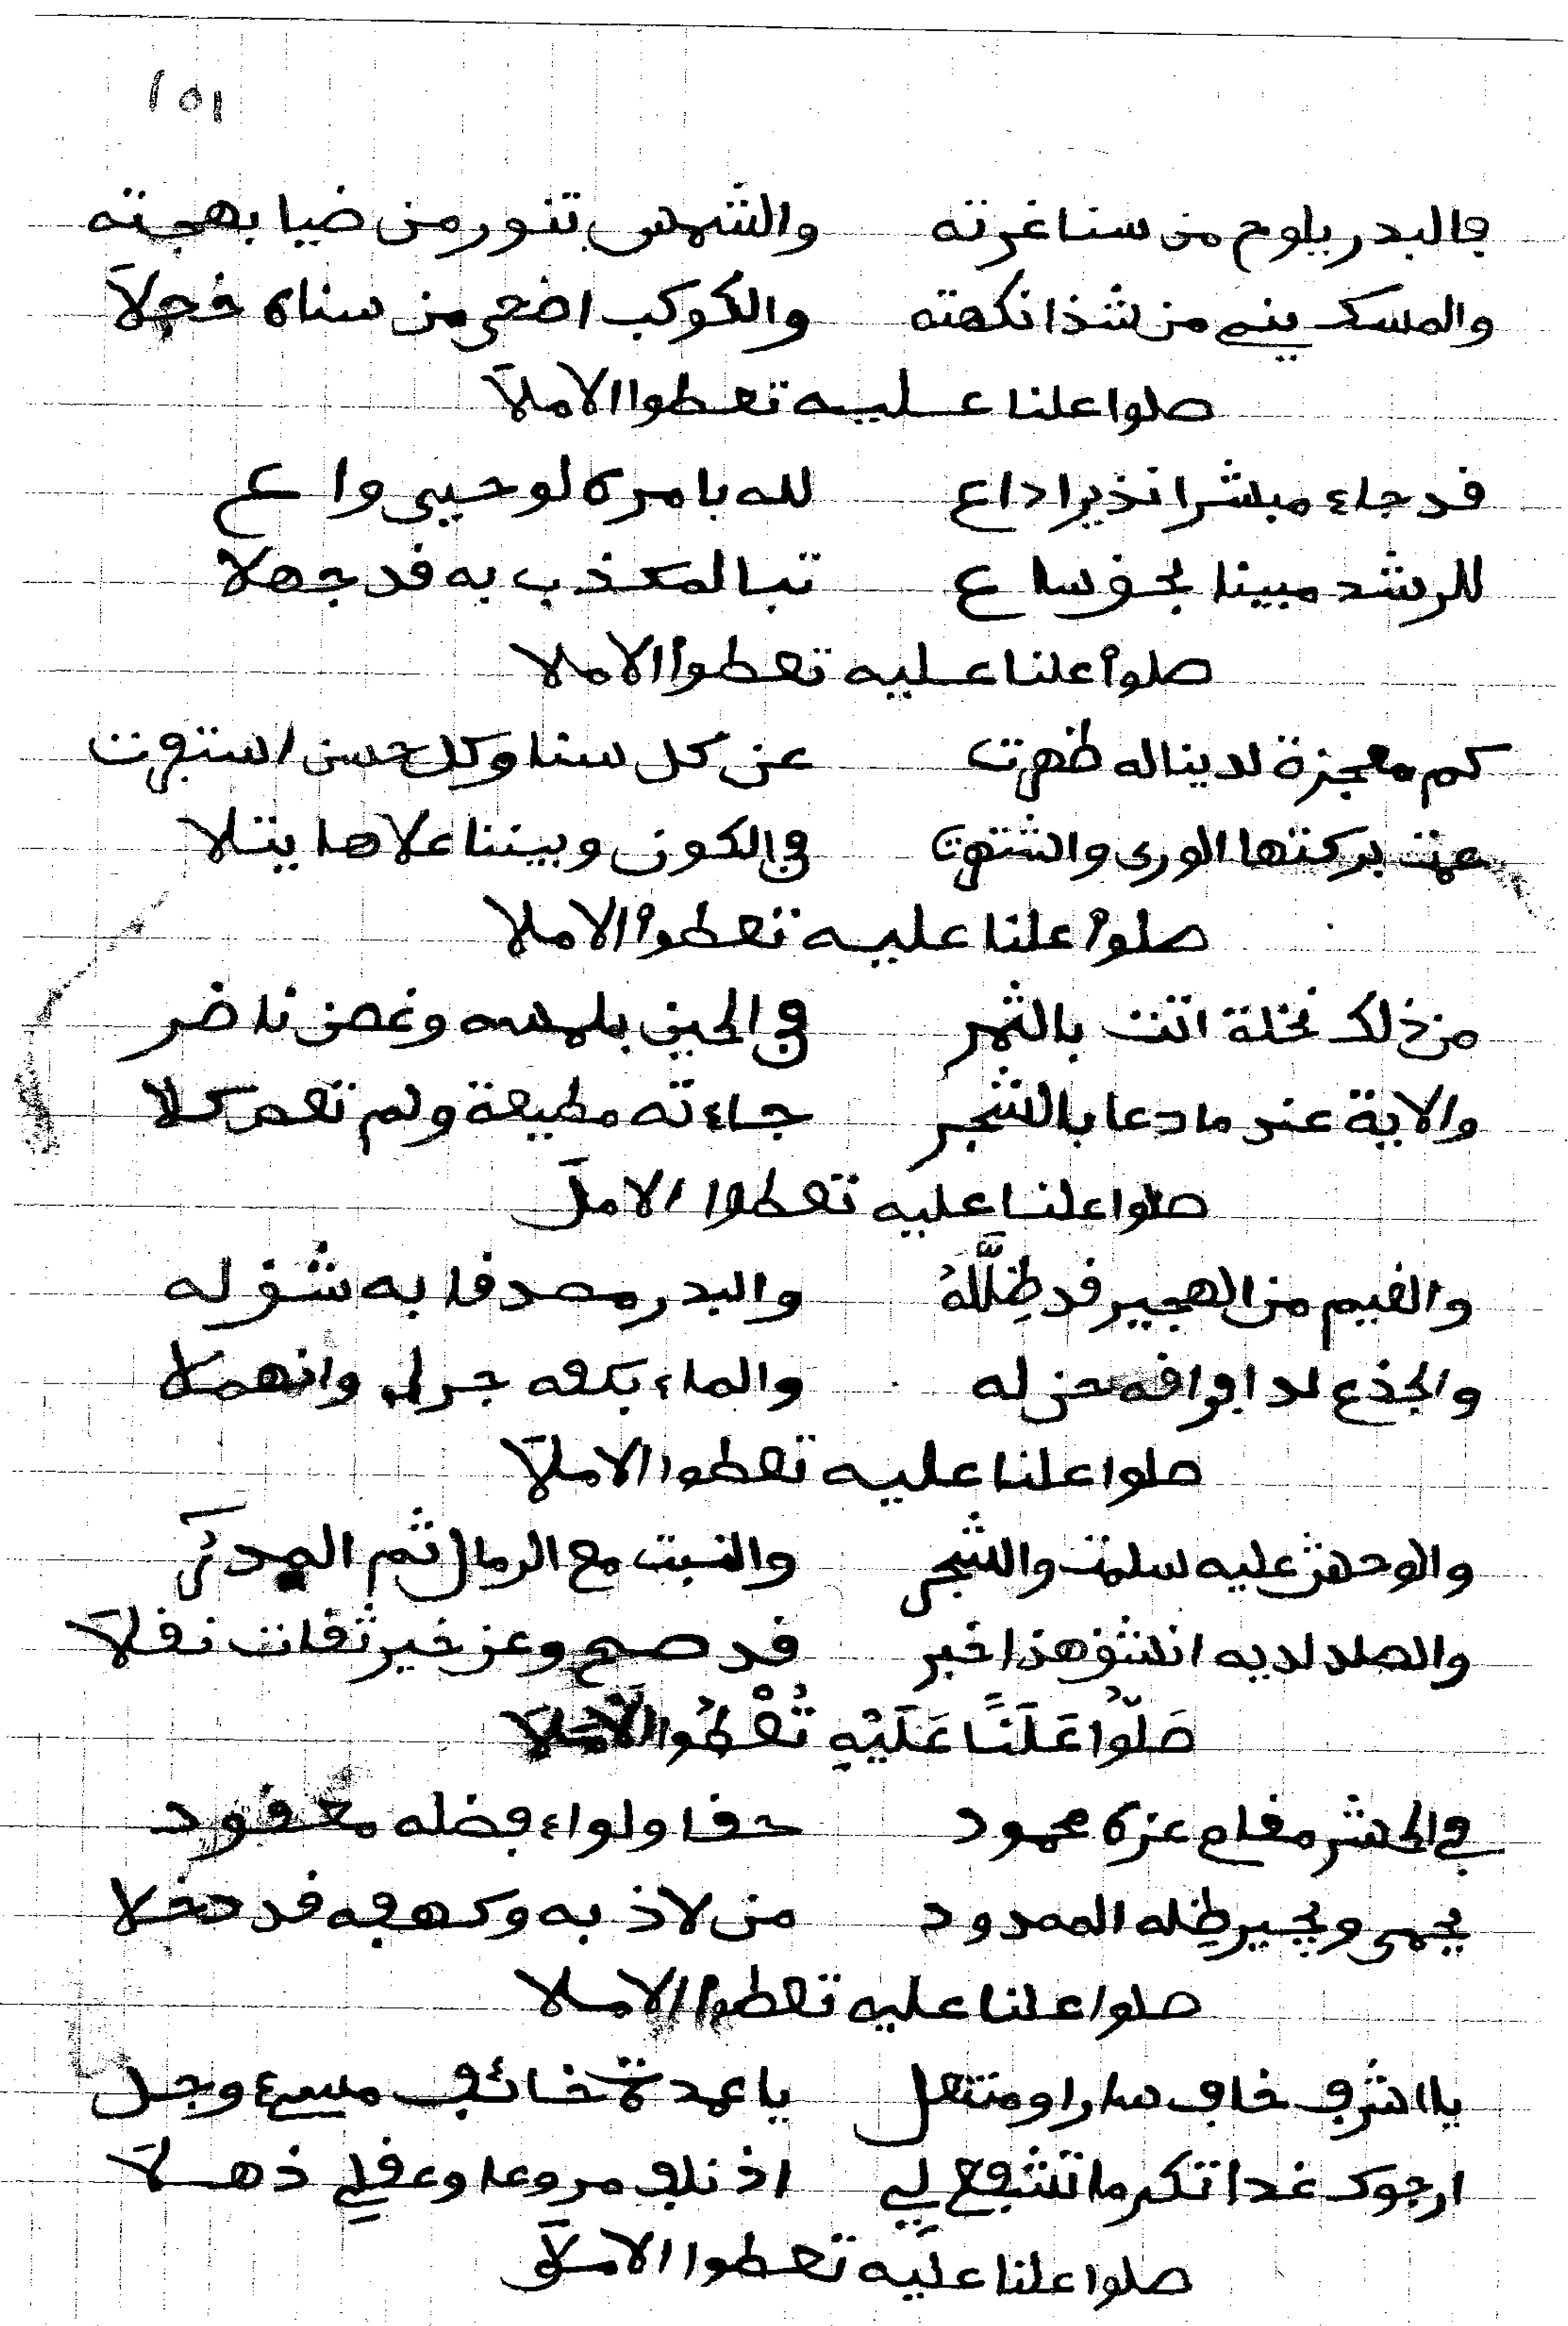 ١٥١
فالبدر يلوح من سنا غرته والشمس تنور من ضيا بهجته
والمسك ينم من شذا نكهته والكوكب اضحى من سناه خجلا
صلوا علنا عليه تعطوا الاملا
قد جاء مبشرا نذيرا داع لله بامره لوحيى واع
للرشد مبينا بحق ساع تبا لمكذب به قد جهلا
صلوا علنا عليه تعطوا الاملا
كم معجزة لدينا له ظهرت عن كل سنا وكل حسن استفرت
عمت بركتها الورى واشتهرت في الكون وبيننا علاها يتلا
صلوا علنا عليه تعطوا الاملا
من ذلك نخلة اتت بالثمر في الحين بلمسه وغصن ناضر
والاية عند ما دعا بالشجر جاءته مطيعة ولم تعص كلا
صلوا علنا عليه تعطوا الاملا
والغيم من الهجير قد ظَلَّلَهُ والبدر مصدقا به شق له
والجذع لدا فراقه حن له والماء بكفه جرى وانهملا
صلوا علنا عليه تعطوا الاملا
والوحش عليه سلمت والشجر والنبت مع الرمال ثم المدر
والصلد لديه انشق هذا خبر قد صح وعن خير ثقات نقلا
صَلُّوا عَلَنًا عَلَيْهِ تُعْطَوُا الْأَمَلَا
في الحشر مقام عزه محمود حقا ولواء فضله معقود
يحمى ويجير ظله الممدود من لاذ به وكهفه قد دخلا
صلوا علنا عليه تعطوا الاملا
يا اشرف حاف سار او منتعل يا عمدة خائف مسيء وجل
ارجوك غدا تكرما تشفع لي اذ نلف مروعا وعقلي ذهلا
صلوا علنا عليه تعطوا الاملا